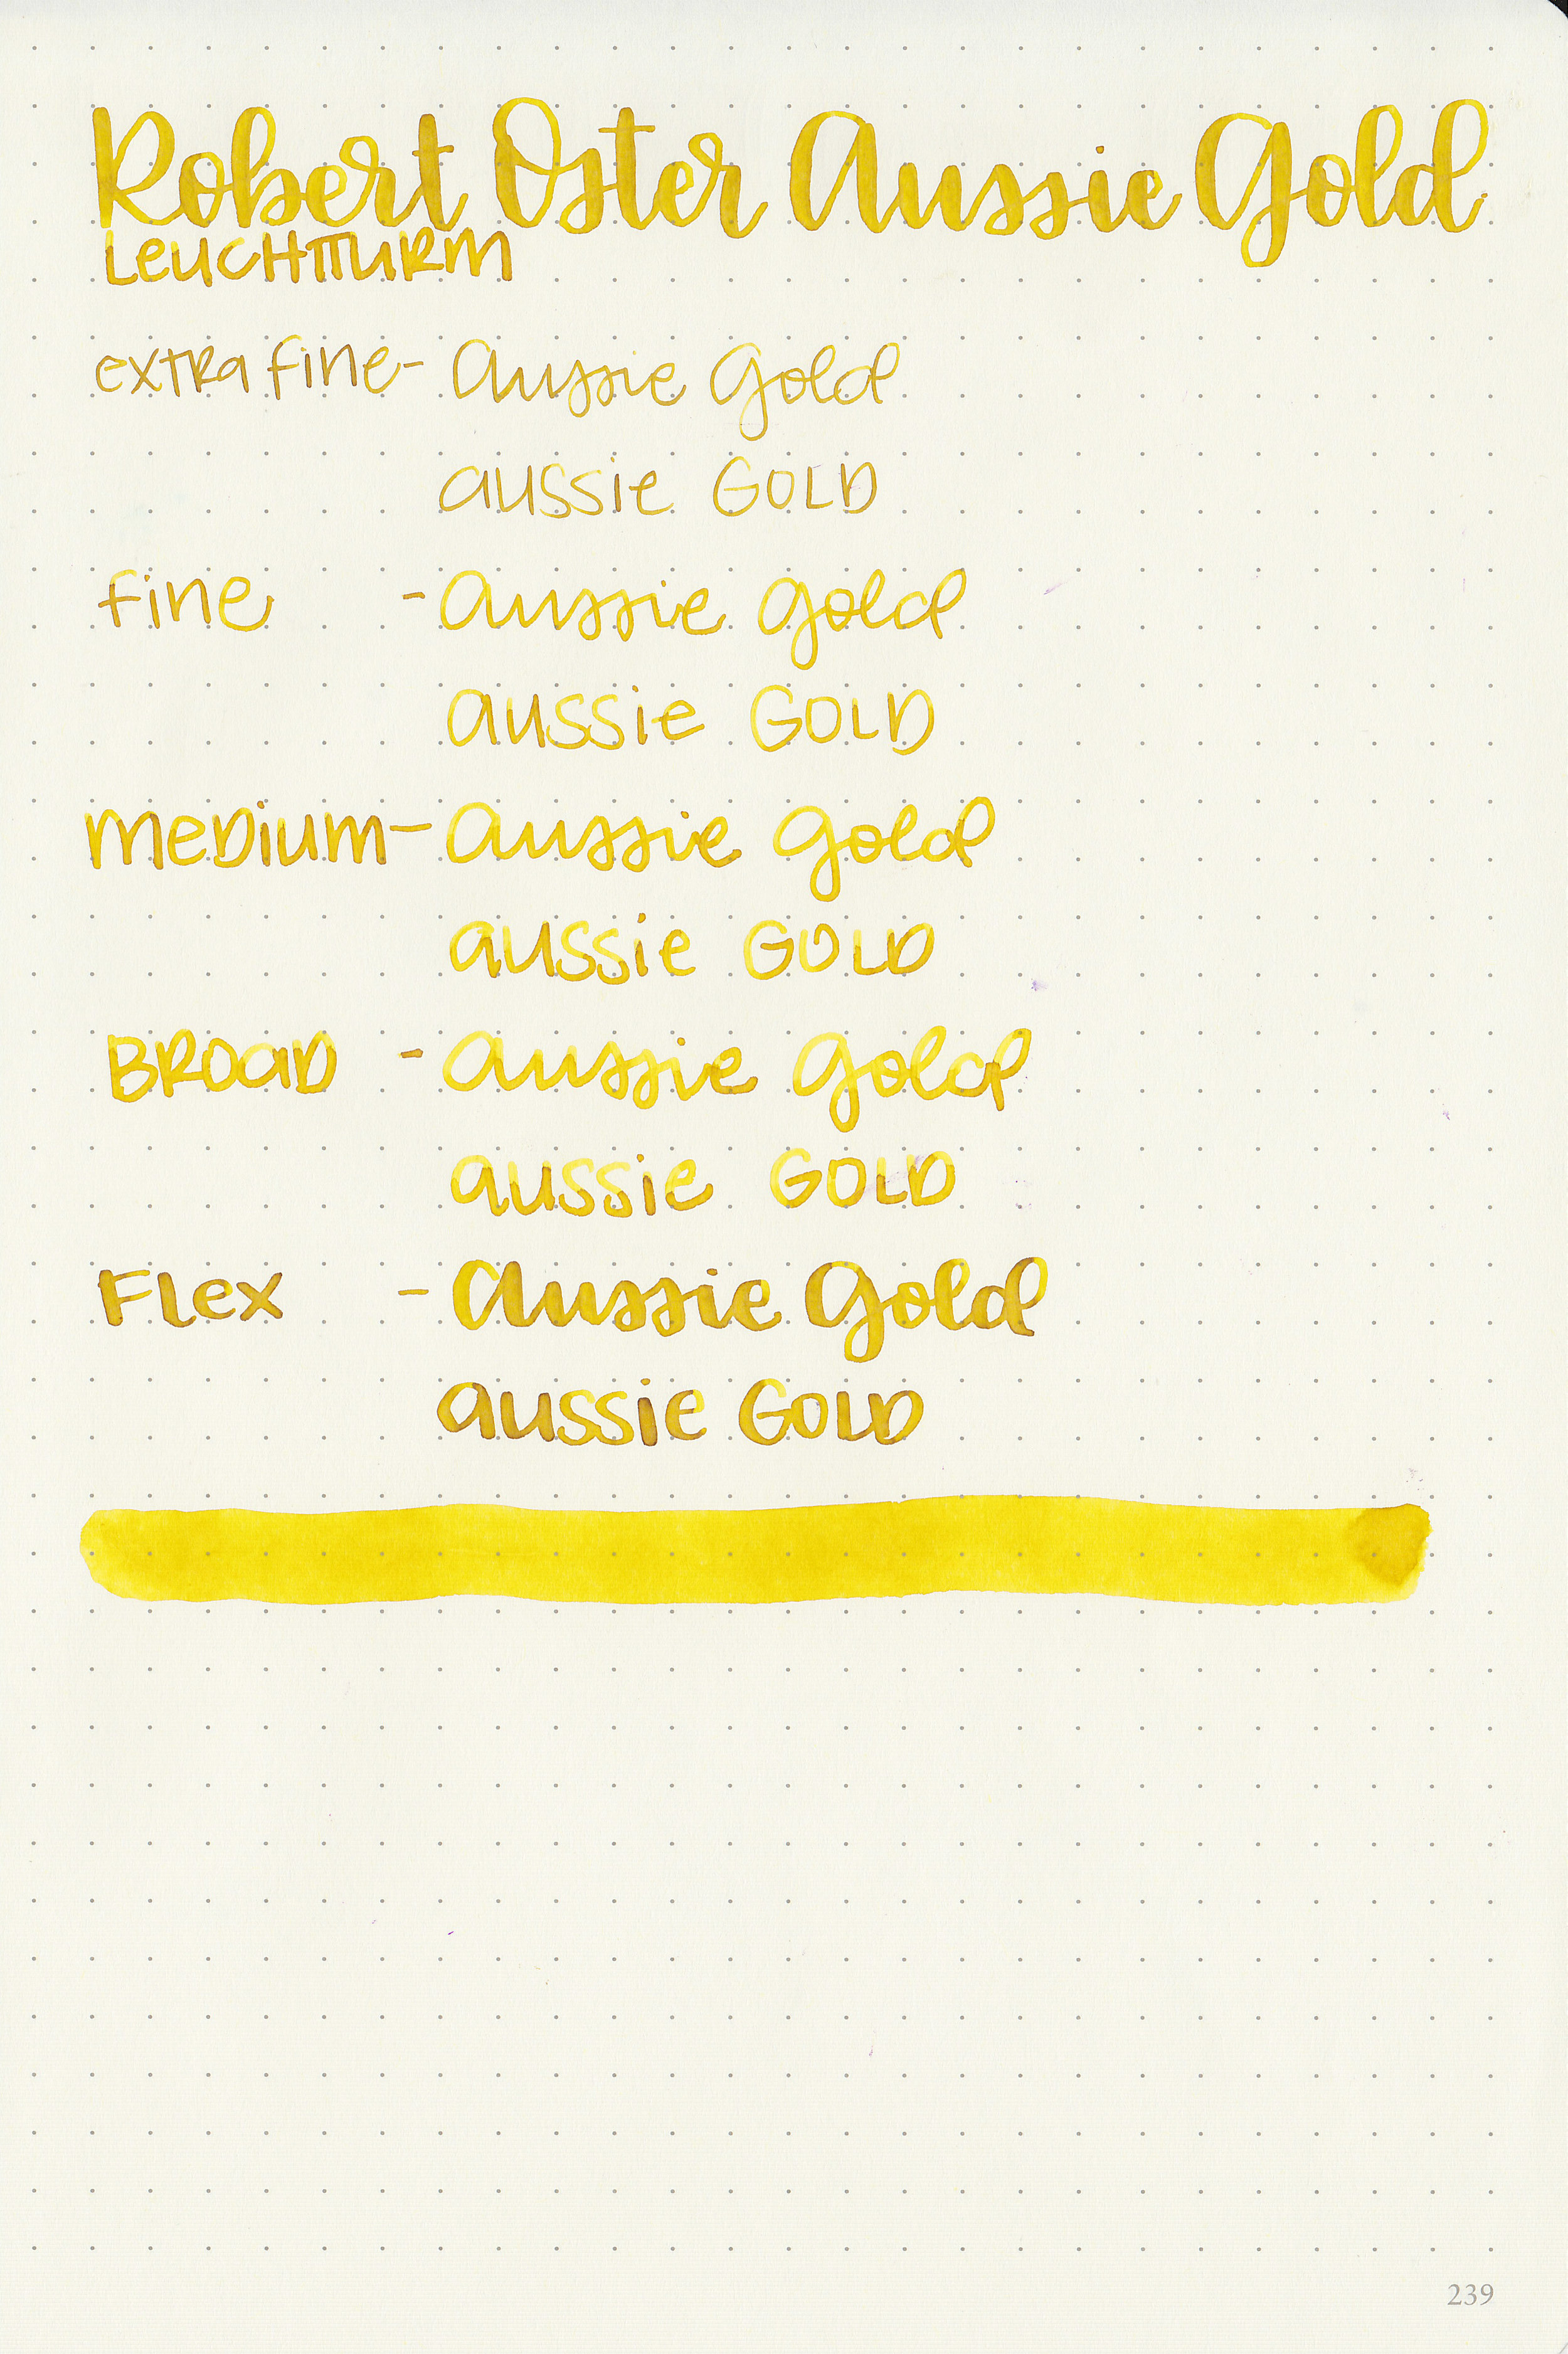 Robert Oster Aussie Gold
LEUCHTTURM
extra fine - Aussie Gold
aussie GOLD
fine - Aussie Gold
aussie GOLD
MEDIUM - Aussie Gold
aussie GOLD
BROAD - Aussie Gold
aussie GOLD
FLEX - Aussie Gold
aussie GOLD
239